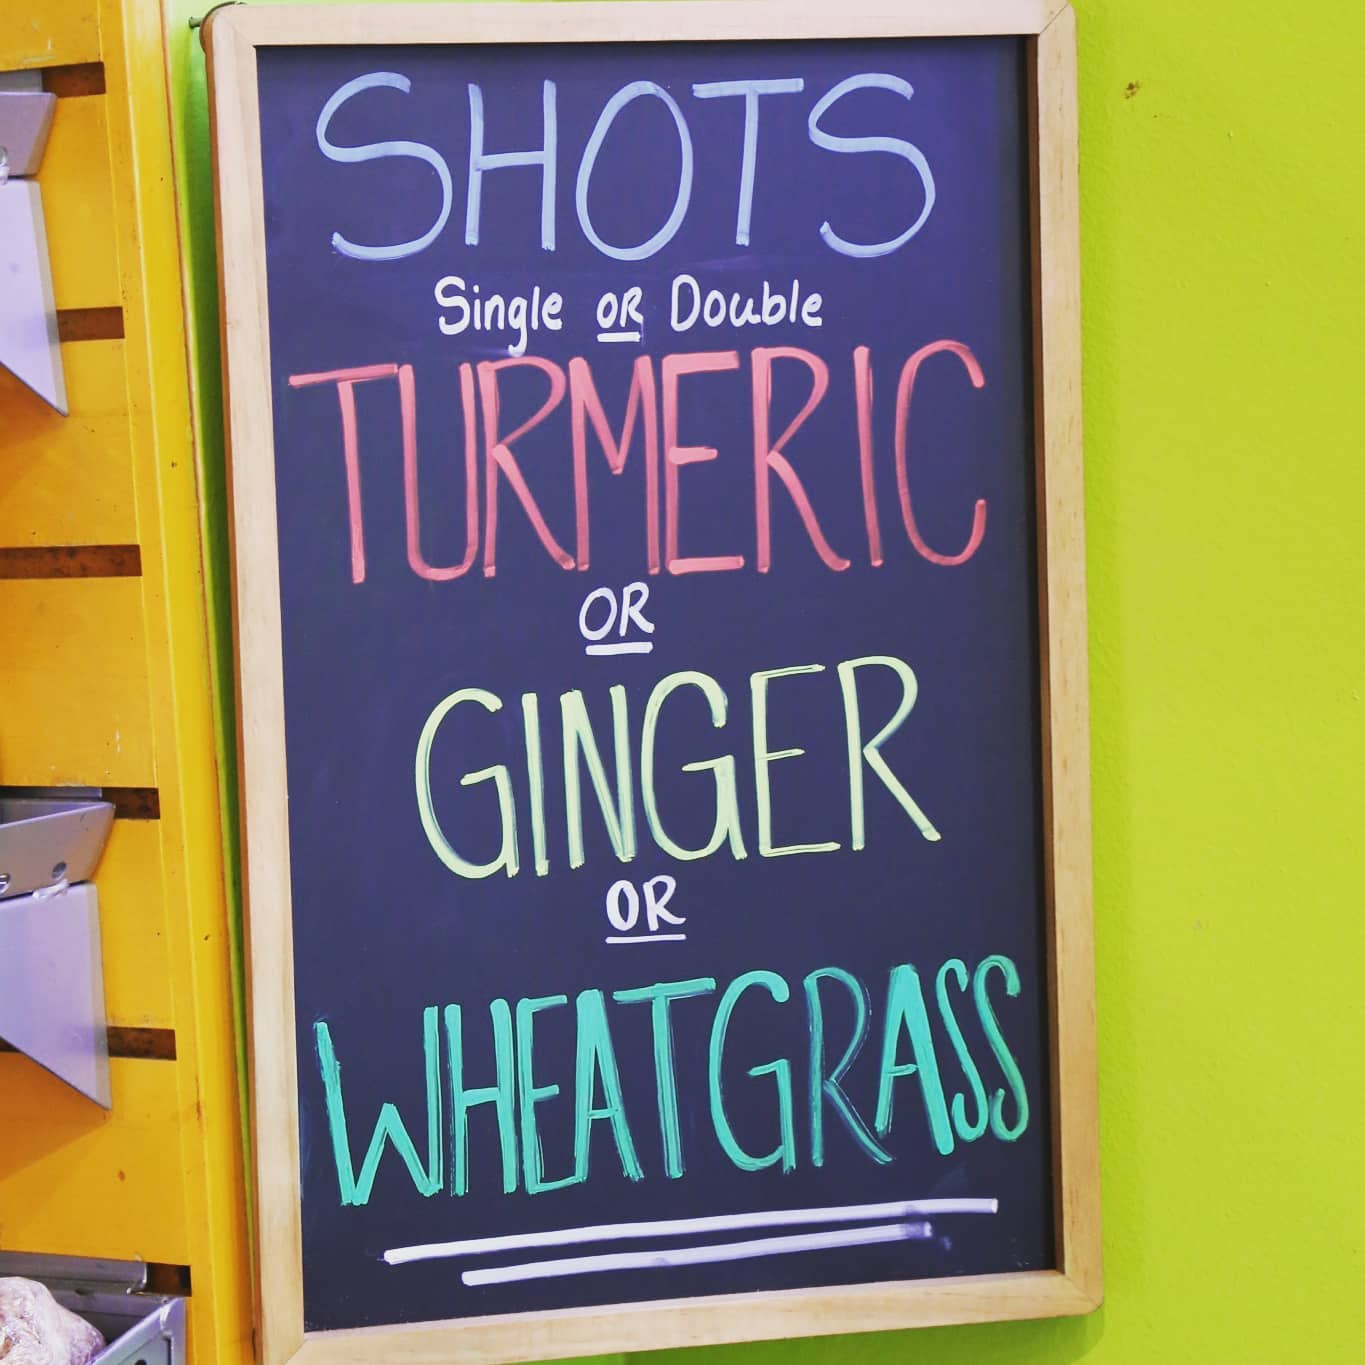 SHOTS
Single OR Double
TURMERIC
OR
GINGER
OR
WHEATGRASS